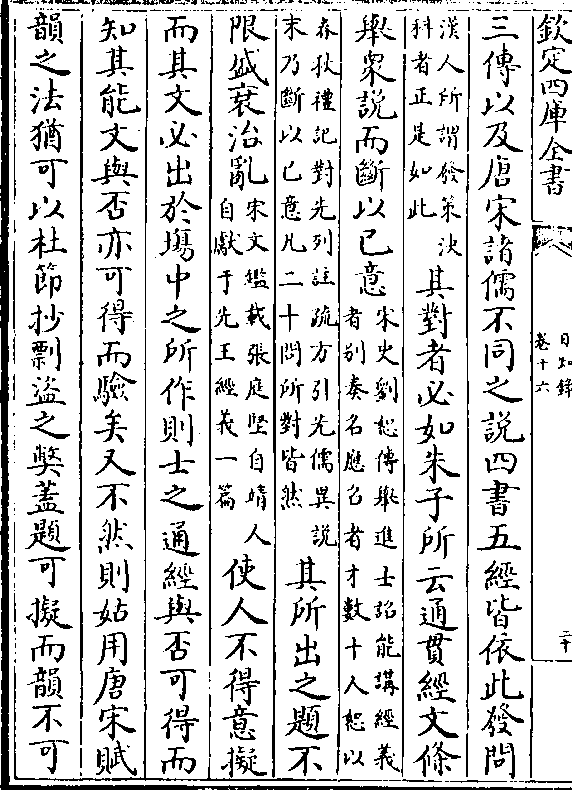 欽定四庫全書
日知錄
卷十六
二十
三傳以及唐宋諸儒不同之說四書五經皆依此發問
漢人所謂發策決
科者正是如此
其對者必如朱子所云通貫經文條
舉衆說而斷以已意
宋史劉恕傳舉進士詔能講經義
者别奏名應召者才數十人恕以
春秋禮記對先列註疏方引先儒異說
末乃斷以已意凡二十問所對皆然
其所出之題不
限盛衰治亂
宋文鑑載張庭堅自靖人
自獻于先王經義一篇
使人不得意擬
而其文必出於場中之所作則士之通經與否可得而
知其能文與否亦可得而驗矣又不然則姑用唐宋賦
韻之法猶可以杜節抄剽盜之弊蓋題可擬而韻不可